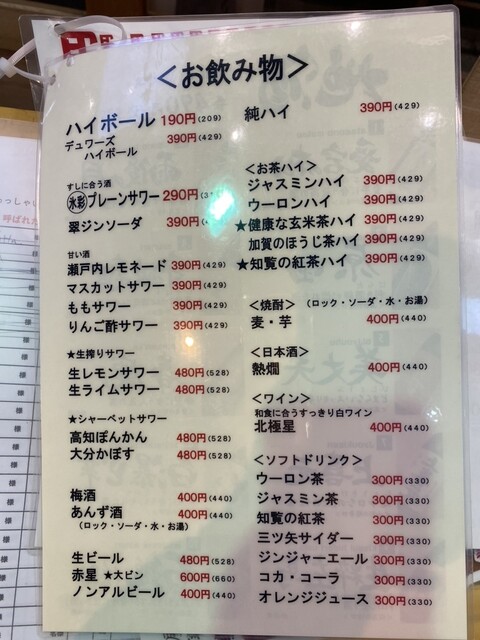 ＜お飲み物＞
ハイボール 190円(209)
デュワーズ
ハイボール 390円(429)
すしに合う酒
氷彩 プレーンサワー 290円
翠ジンソーダ 390円
甘い酒
瀬戸内レモネード 390円(429)
マスカットサワー 390円(429)
ももサワー 390円(429)
りんご酢サワー 390円(429)
★生搾りサワー
生レモンサワー 480円(528)
生ライムサワー 480円(528)
★シャーベットサワー
高知ぽんかん 480円(528)
大分かぼす 480円(528)
梅酒 400円(440)
あんず酒 400円(440)
(ロック・ソーダ・水・お湯)
生ビール 480円(528)
赤星 ★大ビン 600円(660)
ノンアルビール 400円(440)
純ハイ 390円(429)
＜お茶ハイ＞
ジャスミンハイ 390円(429)
ウーロンハイ 390円(429)
★健康な玄米茶ハイ 390円(429)
加賀のほうじ茶ハイ 390円(429)
★知覧の紅茶ハイ 390円(429)
＜焼酎＞ (ロック・ソーダ・水・お湯)
麦・芋 400円(440)
＜日本酒＞
熱燗 400円(440)
＜ワイン＞
和食に合うすっきり白ワイン
北極星 400円(440)
＜ソフトドリンク＞
ウーロン茶 300円(330)
ジャスミン茶 300円(330)
知覧の紅茶 300円(330)
三ツ矢サイダー 300円(330)
ジンジャーエール 300円(330)
コカ・コーラ 300円(330)
オレンジジュース 300円(330)